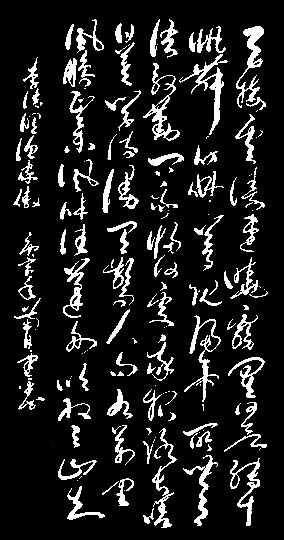 天接雲濤連曉霧星河欲轉千
帆舞彷彿夢魂歸帝所聞天
語殷勤問我歸何處我報路長嗟
日暮學詩謾有驚人句九萬里
風鵬正舉風休住蓬舟吹取三山去
李清照漁家傲